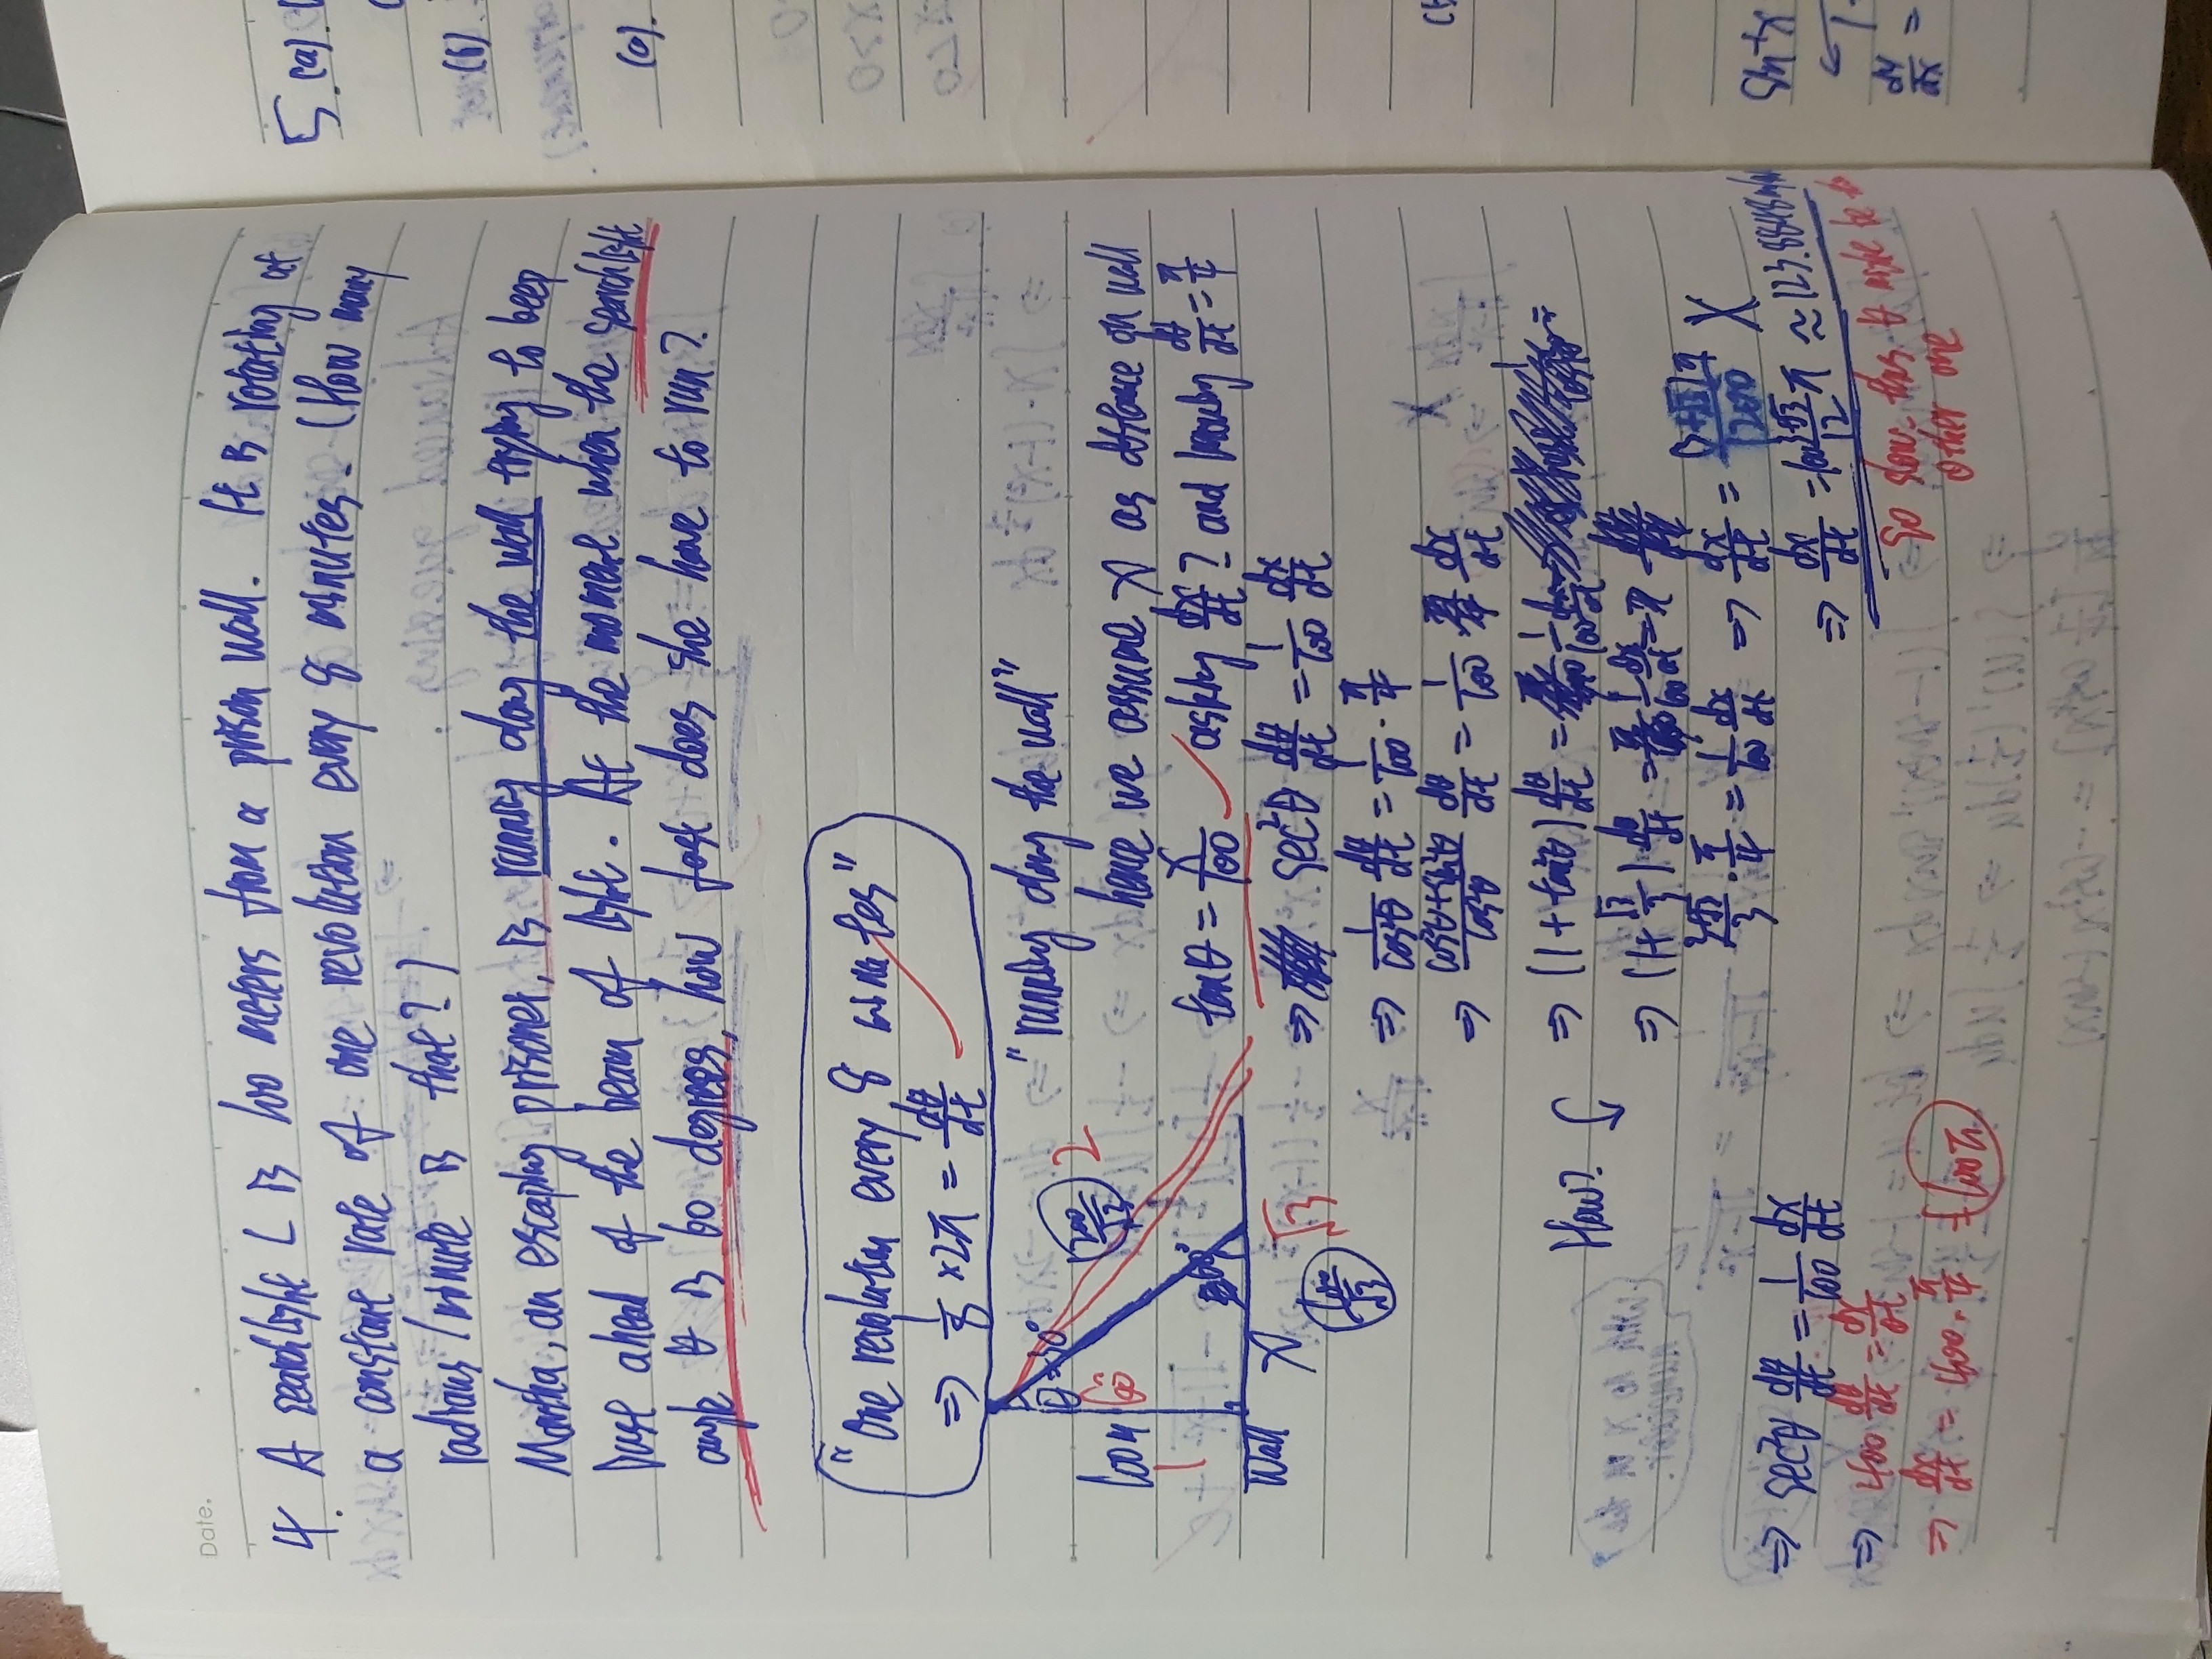 Date.
4. A searchlight L is 100 meters from a prison wall. It is rotating at
a constant rate of one revolution every 8 minutes. (How many
radians/minute is that?)
Martha, an escaping prisoner, is running along the wall trying to keep
just ahead of the beam of light. At the moment when the searchlight
angle θ is 60 degrees, how fast does she have to run?
"One revolution every 8 minutes"
⇒ 1/8 × 2π = dθ/dt
"running along the wall"
θ = 30°
200/√3 2
100m 60°
1
60°
Wall x √3
100/√3
hence we assume x as distance on wall
tanθ = x/100 asking dx/dt? and knowing dθ/dt = π/4
⇒ sec²θ dθ/dt = 1/100 dx/dt
⇒ 1/cos²θ dθ/dt = 1/100 · π/4
⇒ cos²θ+sin²θ/cos²θ dθ/dt = 1/100 dx/dt
How? ⇒ (1 + tan²θ) dθ/dt = 1/100 dx/dt
⇒ (1 + √3/3) dθ/dt = 1/100 dx/dt = π
3+√3/3 · π/4 = 1/100 dx/dt ⇒ dx/dt = (3+√3)π/1200 X
⇒ dx/dt = 100 3+√3/12 π ≈ 123.8848 m/m
So slow. thus θ might be the
other one
⇒ sec²θ dθ/dt = 1/100 dx/dt
⇒ 400 dθ/dt = dx/dt
⇒ dx/dt = 400 · π/4 = 100π
5. (a).
(b).
(c).
x>0
x<0
dy/dx =